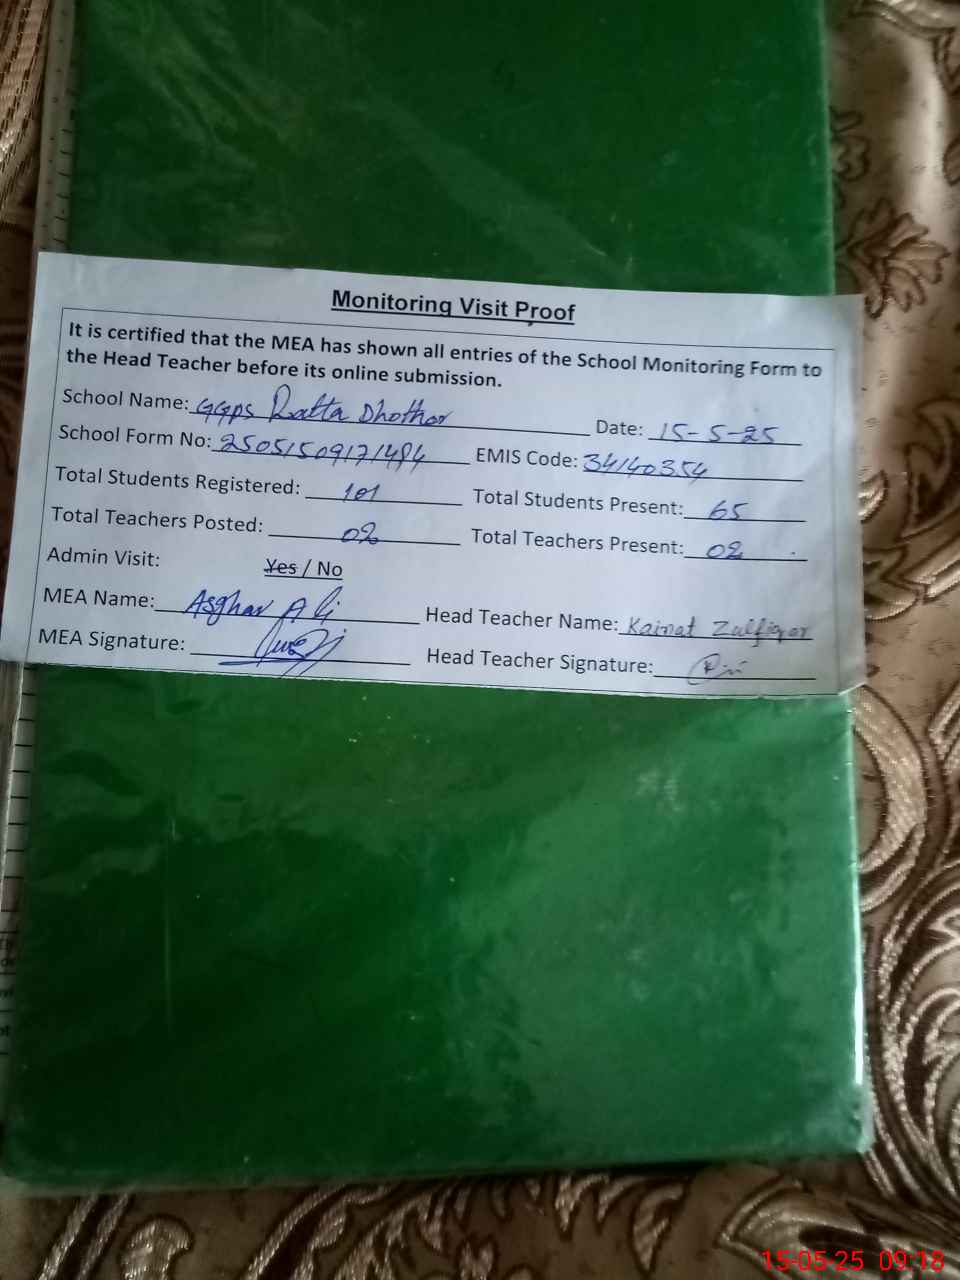 Monitoring Visit Proof
It is certified that the MEA has shown all entries of the School Monitoring Form to
the Head Teacher before its online submission.
School Name: GGPS Ratta Dhothar Date: 15-5-25
School Form No: 25051509171494 EMIS Code: 34140354
Total Students Registered: 101 Total Students Present: 65
Total Teachers Posted: 02 Total Teachers Present: 02
Admin Visit: Yes / No
MEA Name: Asghar Ali Head Teacher Name: Kainat Zulfiqar
MEA Signature: Head Teacher Signature:
15-05-25 09:18